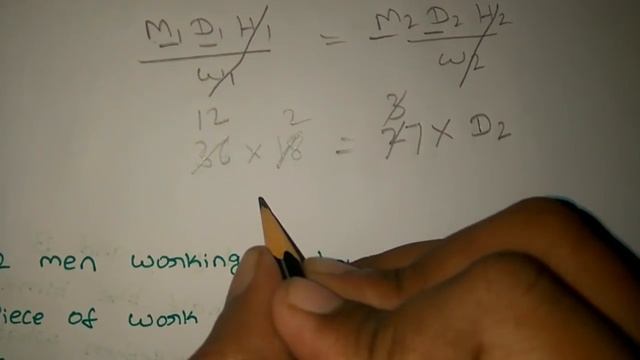 M1 D1 H1 = M2 D2 H2
W1 W2
12 2 3
36 × 18 = 27 × D2
2 men working
piece of work